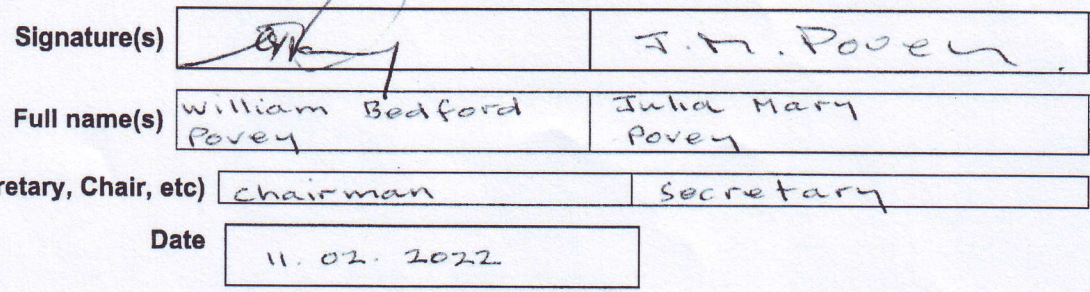 Signature(s) J.M. Povey
Full name(s) William Bedford Povey Julia Mary Povey
retary, Chair, etc) chairman secretary
Date 11.02.2022